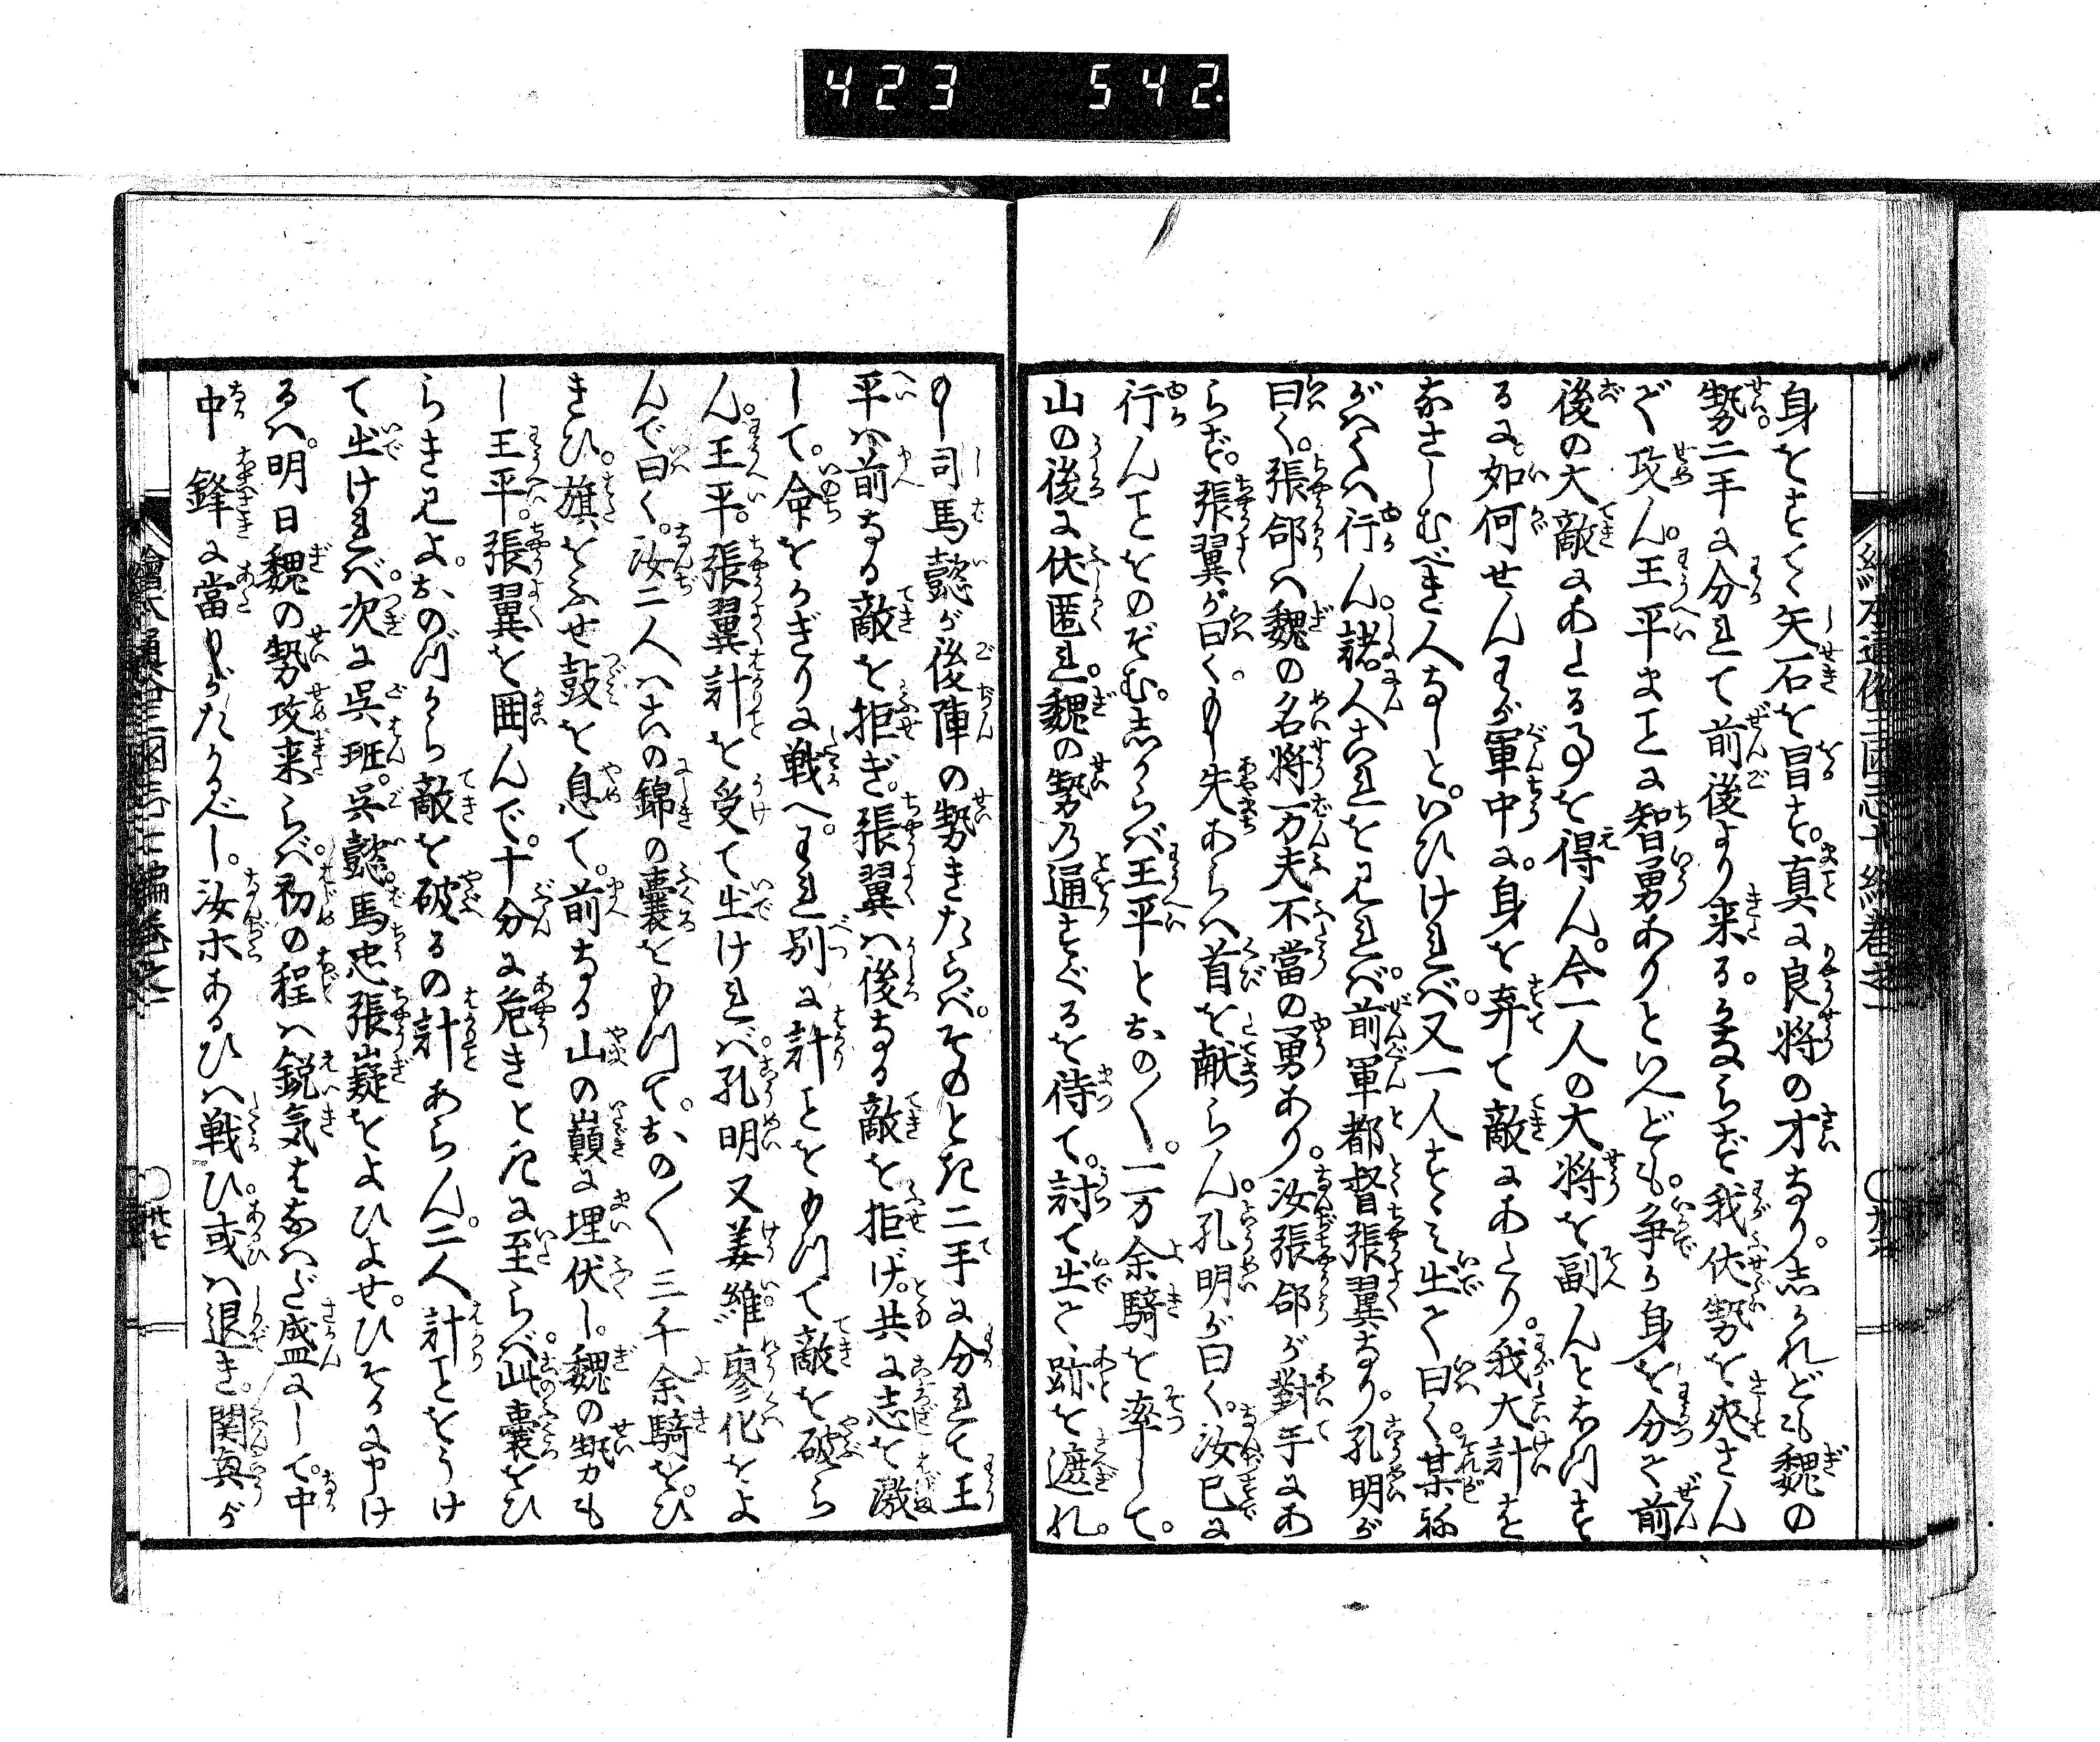 423 542.
身をすてて矢石を冒す。真に良将の才なり。志かれども魏の
勢二手に分れて前後より来る。多ならず我伏勢を夾さん
で攻ん。王平まことに智勇ありといへども。争か身を分て前
後の大敵にあたる事を得ん。今一人の大将を副んとおつす
るに。如何せんわが軍中に。身を弃て敵にあたり。我大計を
なさしむべき人なしと。いひければ。又一人すゝみ出て曰く。某ね
がはくは行ん。諸人これを見れば。前軍都督張翼なり。孔明が
曰く。張郃は魏の名将万夫不當の勇あり。汝張郃が對手にあ
らず。張翼が曰く。もし失あらば首を献らん。孔明が曰く。汝已に
行んことをのぞむ。志からば王平とおの〱。一万余騎を率して。
山の後に伏匿れ。魏の勢乃通すぐるを待て。討て出て、跡を遮れ。
もし司馬懿が後陣の勢きたらば。そのとき二手に分れて王
平は前なる敵を拒ぎ。張翼は後なる敵を拒げ。共に志を激
して。命をかぎりに戦へ。われ別に計ことをもつて敵を破ら
ん。王平。張翼計を受て出ければ。孔明又姜維。廖化をよ
んで曰く。汝二人はこの錦の囊をもつて。おの〱三千余騎を。ひ
きひ。旗をふせ鼓を息て。前なる山の巓に埋伏し。魏の勢も
し王平。張翼を囲んで。十分に危きときに至らば。此囊をひ
らき見よ。おのづから敵を破るの計あらん。二人計ことをうけ
て出ければ。次に呉班。呉懿。馬忠張嶷をよひよせ。ひそかに申け
るは。明日魏の勢攻来らば。初の程は鋭気はなはだ盛にして。中
中鋒に當りがたかるべし。汝ホあるひは戦ひ。或は退き。関興が
繪本通俗三國志七編巻之一